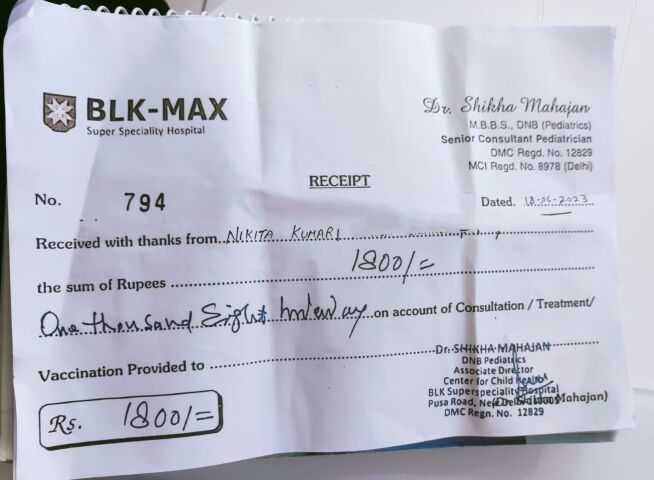 BLK-MAX
Super Speciality Hospital
Dr. Shikha Mahajan
M.B.B.S., DNB (Pediatrics)
Senior Consultant Pediatrician
DMC Regd. No. 12829
MCI Regd. No. 8978 (Delhi)
RECEIPT
No. 794
Dated. 18-06-2023
Received with thanks from NIKITA KUMARI
the sum of Rupees 1800/=
One thousand Eight on account of Consultation / Treatment/
Vaccination Provided to
Dr. SHIKHA MAHAJAN
DNB Pediatrics
Associate Director
Center for Child Health
BLK Superspeciality Hospital
Pusa Road, New Delhi-110005
(Dr. Shikha Mahajan)
DMC Regn. No. 12829
Rs. 1800/=